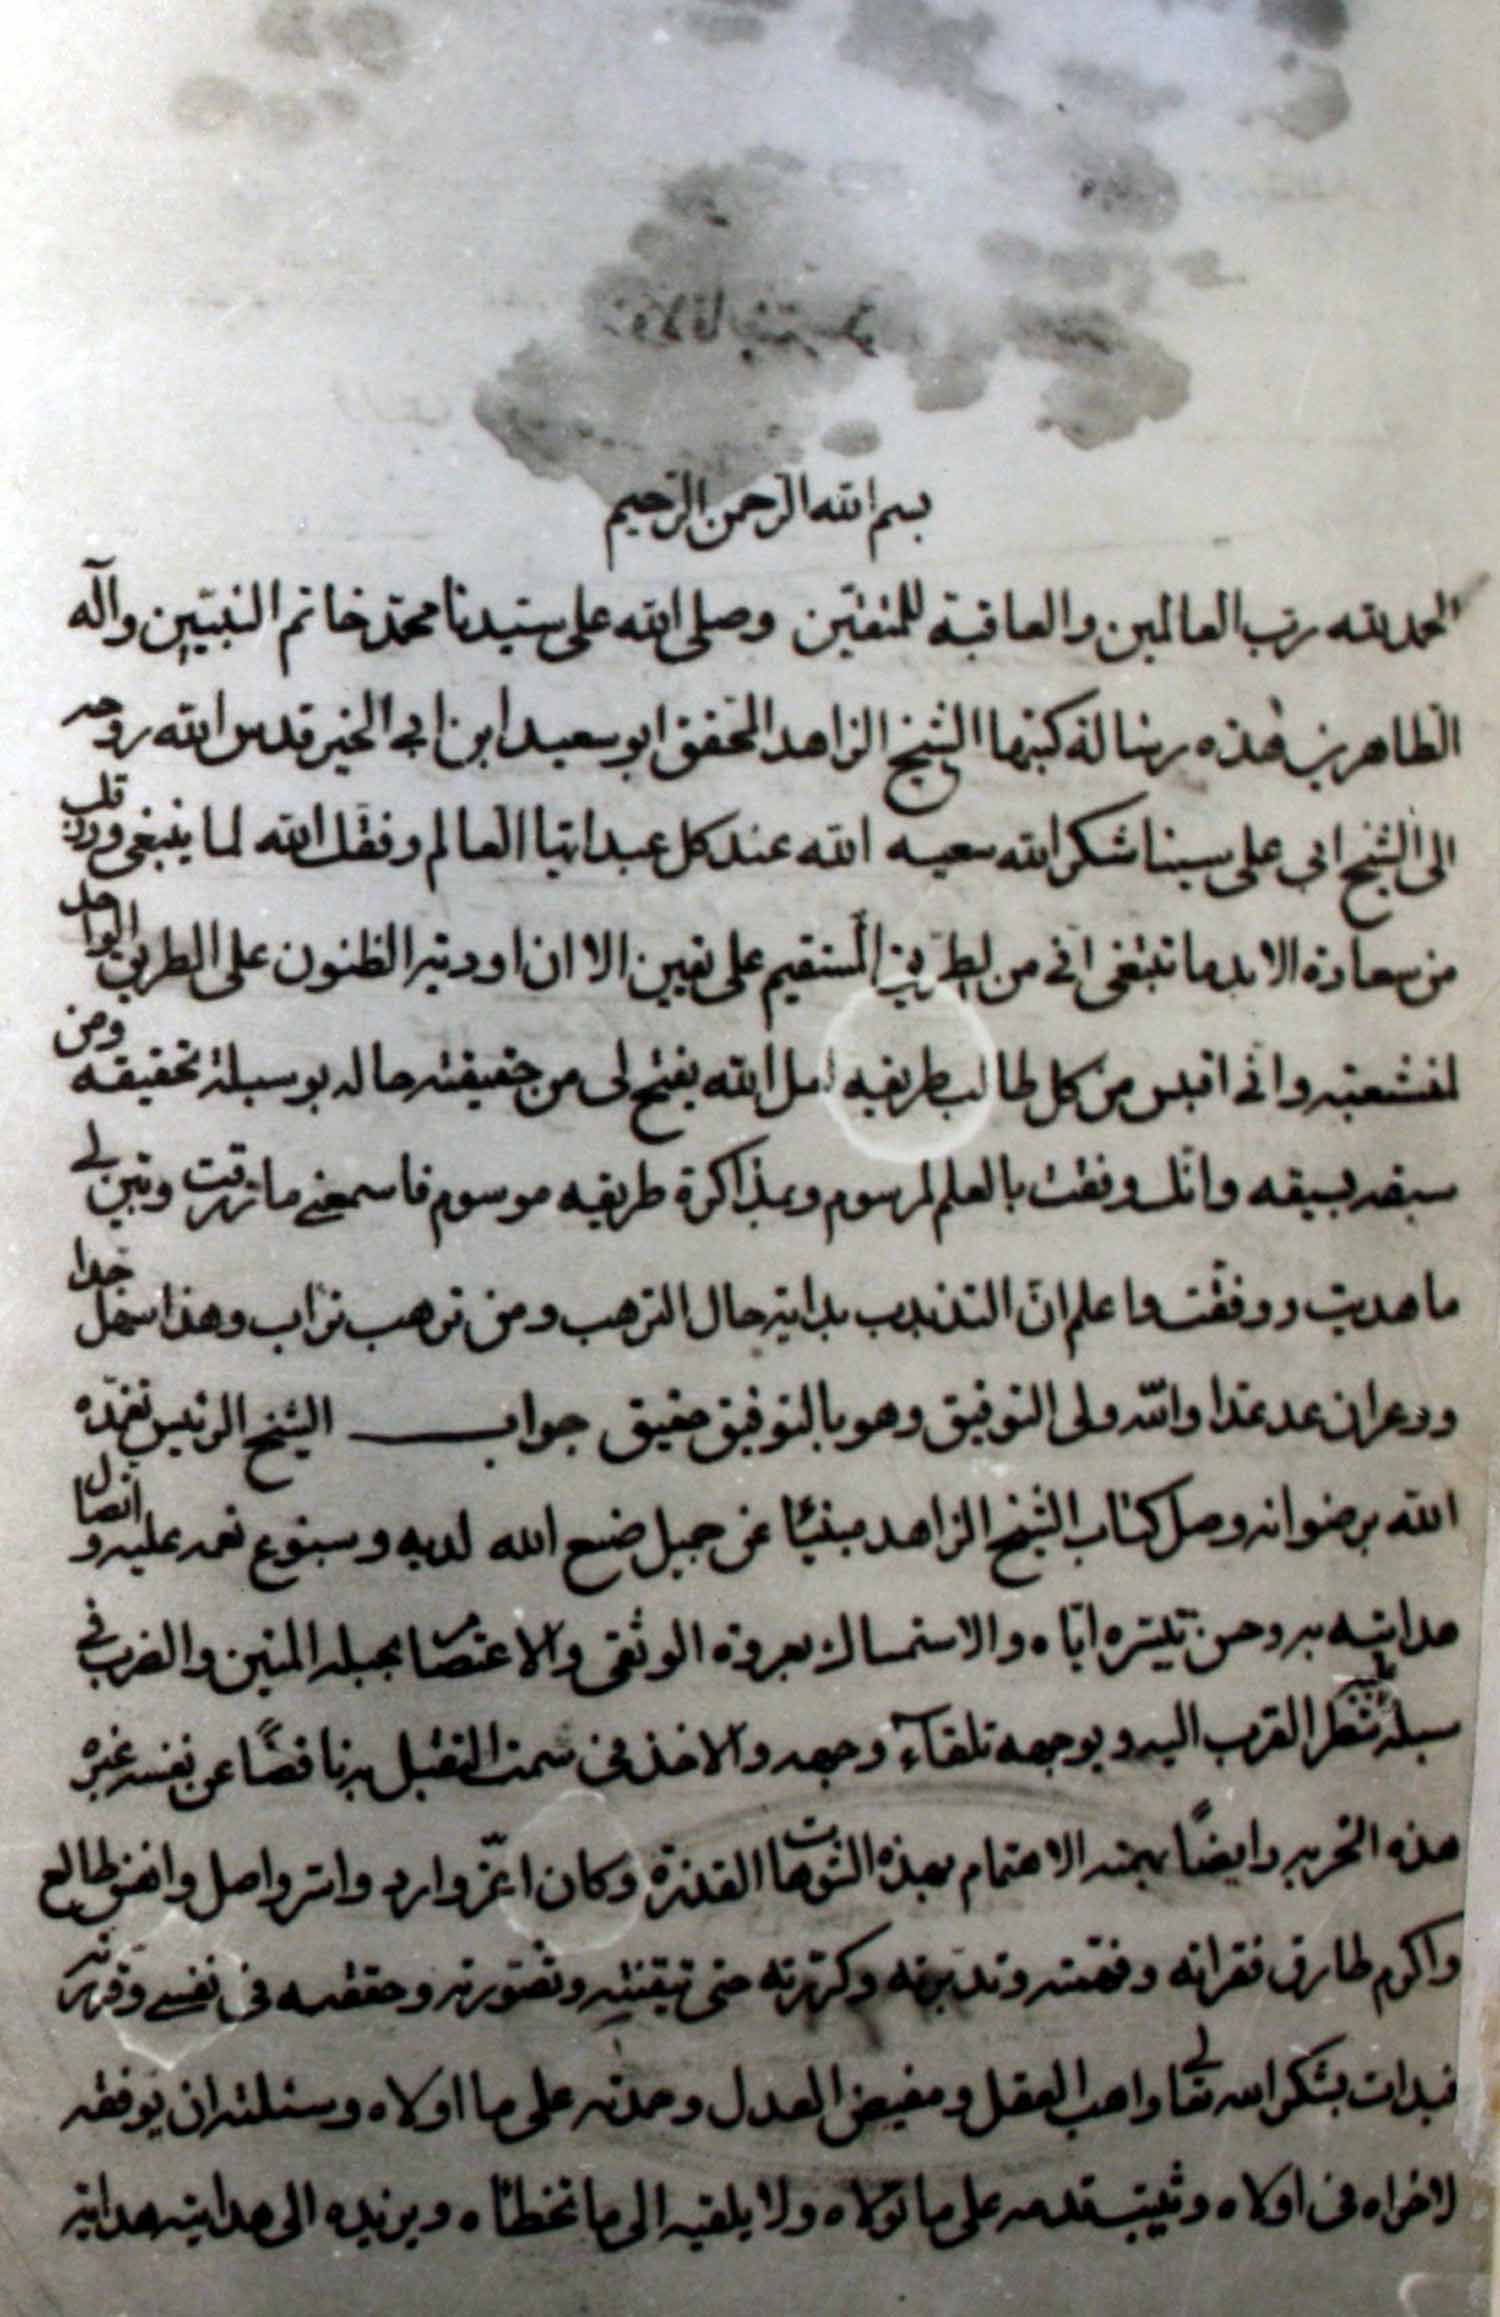 بسم الله الرحمن الرحيم
الحمد لله رب العالمين والعاقبة للمتقين وصلى الله على سيدنا محمد خاتم النبيين وآله
الطاهرين هذه رسالة كتبها الشيخ الزاهد المحقق ابو سعيد ابن ابى الخير قدس الله روحه
الى الشيخ ابى على سينا شكر الله سعيه الله عند كل عبد ايها العالم وفقك الله لما ينبغى ورزقك
من سعادة الابد ما تبتغى انى من الطريق المستقيم على يقين الا ان اودية الظنون على الطريق الواحد
لمتشعبة وانى اقبس من كل طالب طريقه لعل الله يفتح لى من حقيقة حاله بوسيلة تحقيقه ومن
سبقه بسبقه وانك وفقت بالعلم لمرسوم وبمذاكرة طريقه موسوم فاسمعنى ما رزقت وبين لى
ما هديت ووفقت واعلم ان التذبذب بداية حال الترهب ومن ترهب تراب وهذا سهل جدا
وعران عد عدا والله ولى التوفيق وهو بالتوفيق حقيق جواب الشيخ الرئيس تغمده
الله برضوانه وصل كتاب الشيخ الزاهد مبنيا عن جميل صنع الله لديه وسبوغ نعمه عليه واتصال
هدايته به وحسن تيسره اياه والاستمساك بعروة الوثقى والاعتصام بحبله المتين والضرب فى
سبله شطر القرب اليه وبوجهه تلقاء وجهه والاخذ فى سمت التقبل به نافضا عن نفسه غبرة
هذه الخربه رافضا بهمته الاهتمام بهذه القذرة وكان اعز وارد واسر واصل وانفس طالع
واكرم طارق فقراته وفهمته وتدبرته وكررته حتى تيقنته وتصورته وحققته فى نفسى وقررته
فبدات بشكر الله تعالى واهب العقل ومفيض العدل وحمدته على ما اولاه وسئلته ان يوفقه
لاخراه فى اولاه وتثبيت قدمه على ما تولاه ولا يلقيه الى ما تخطاه ويزيده الى هدايته هداية